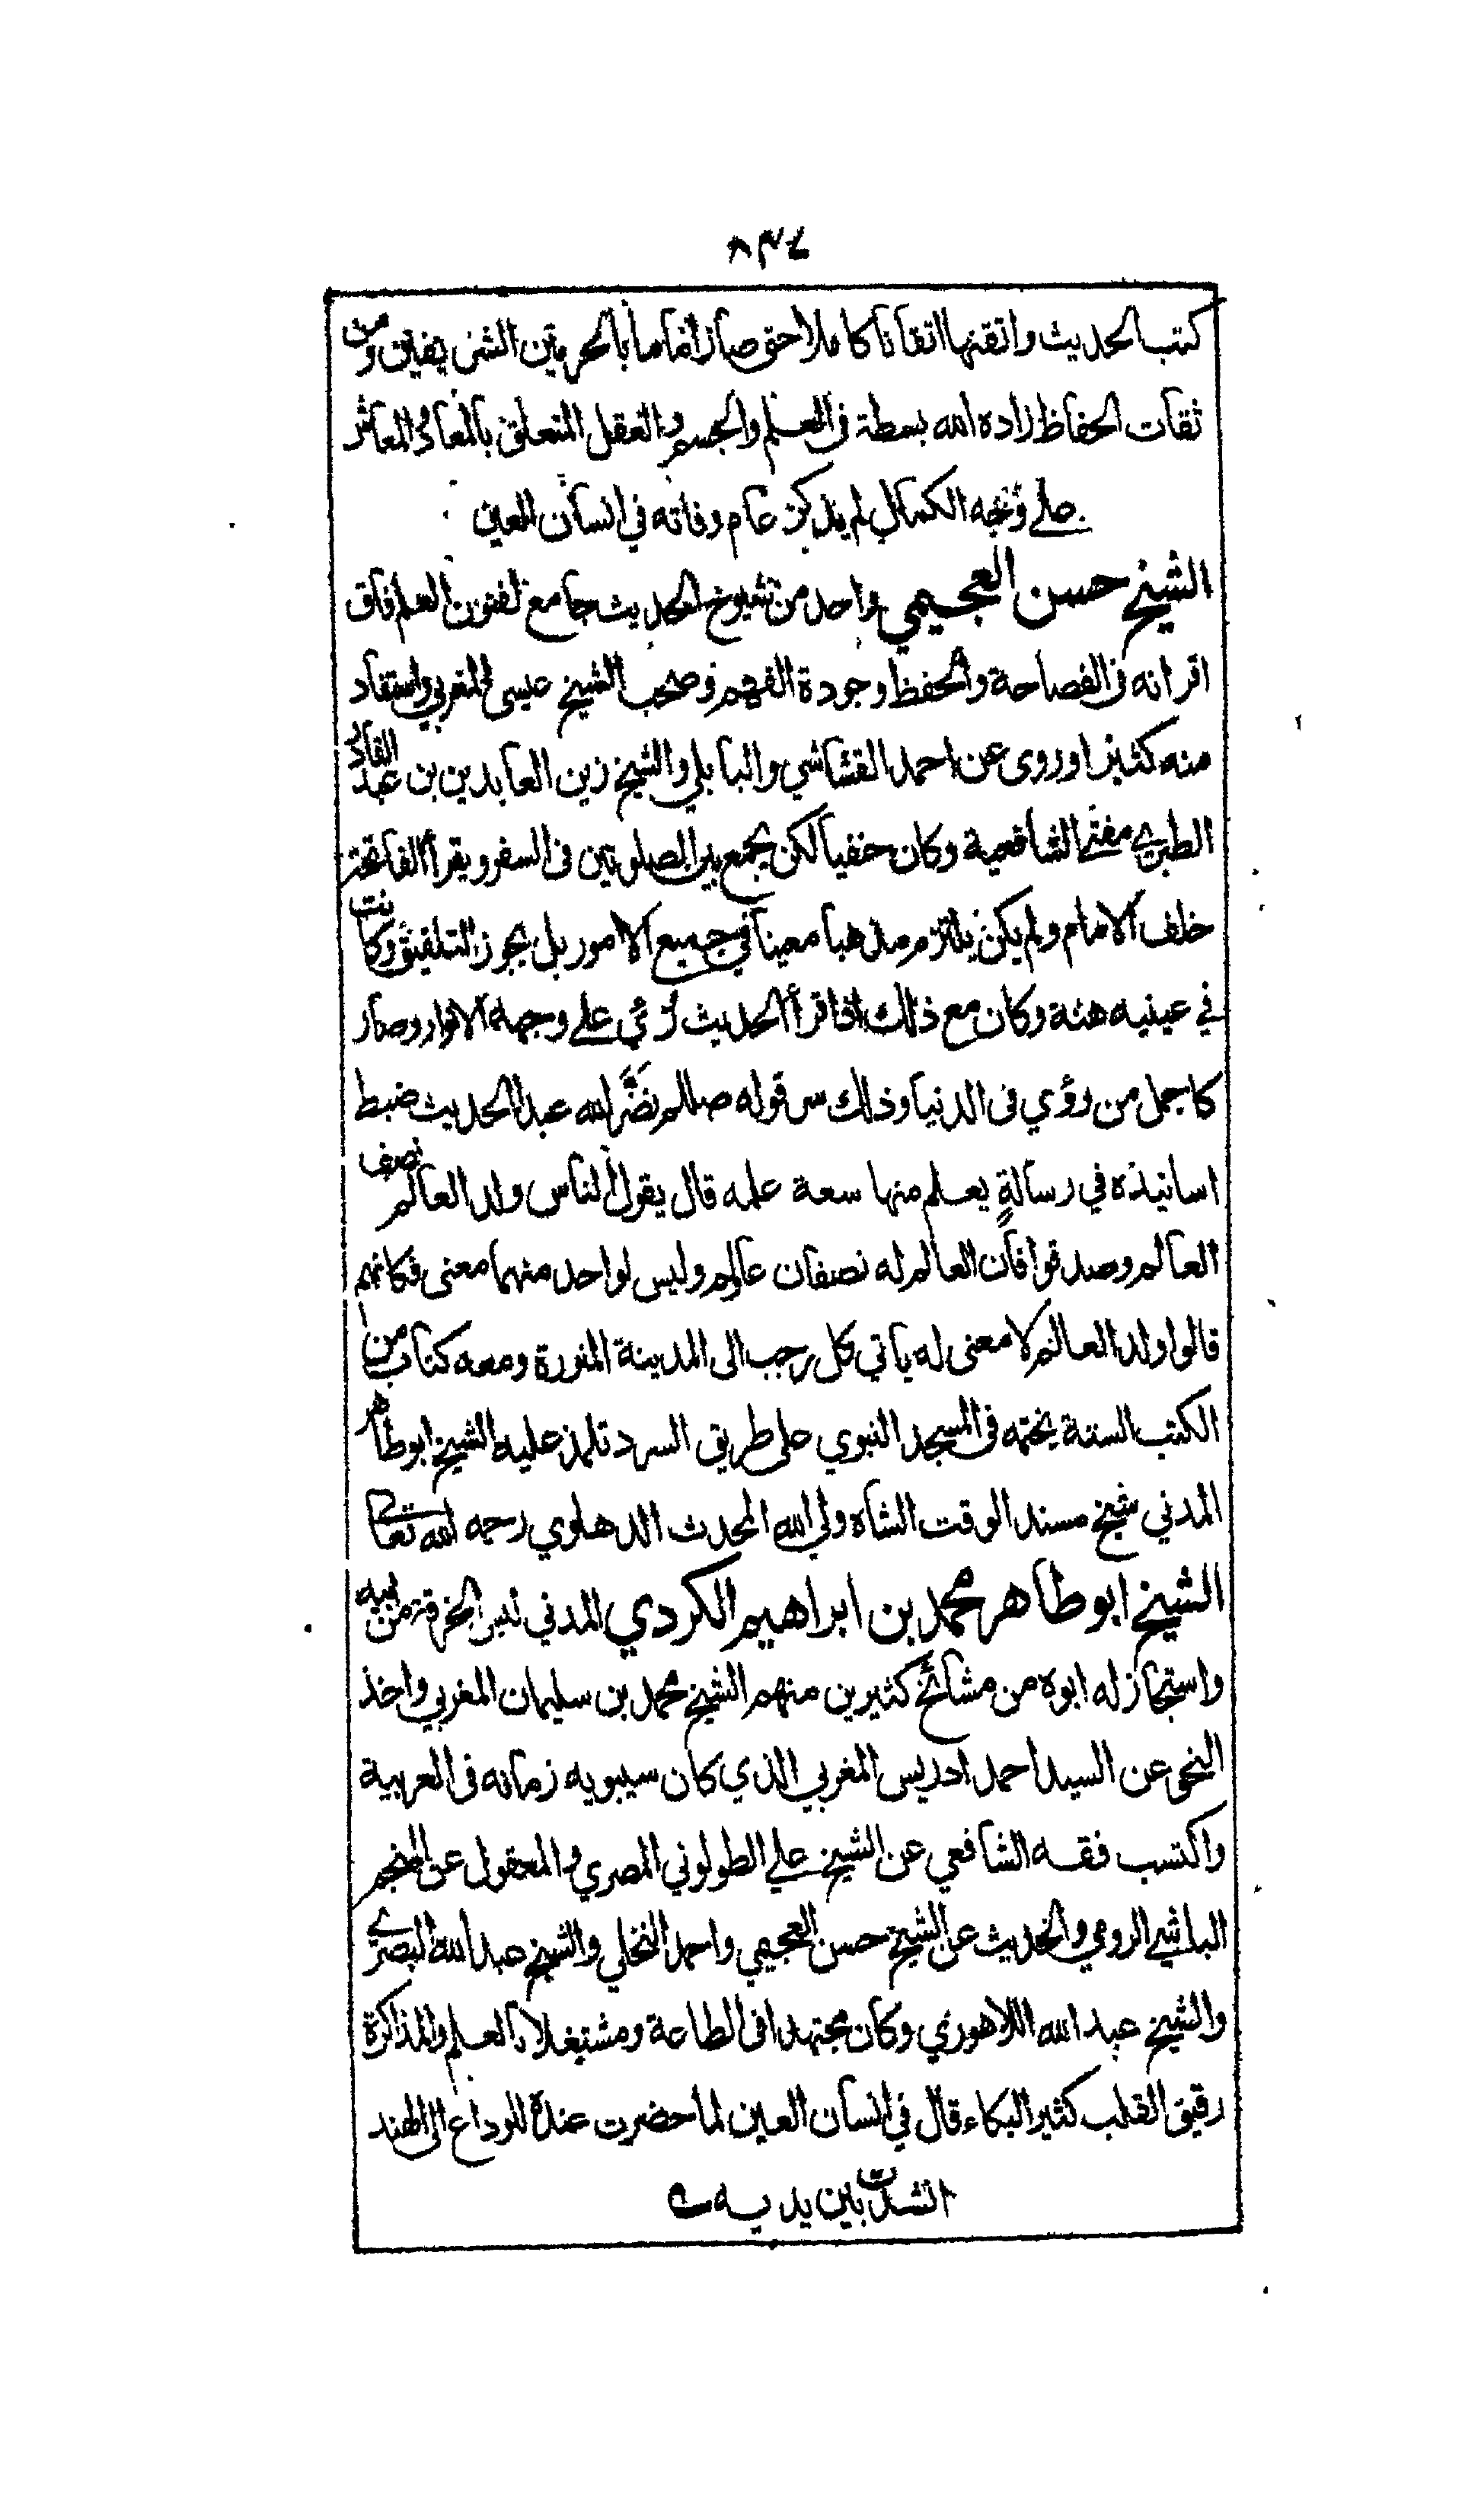 ٨٣٤
كتب الحديث واتقنها اتقانا كاملا حتى صار اماما بالحرمين الشريفين ومن
ثقات الحفاظ زاده الله بسطة في العلم والجسم والعقل المتعلق بالمعاد والمعاش
على وجه الكمال لم يذكر عام وفاته في انسان العين
الشيخ حسن العجيمي واحد من شيوخ الحديث جامع لفنون العلم فاق
اقرانه في الفصاحة والحفظ وجودة الفهم وصحب الشيخ عيسى المغربي واستفاد
منه كثيرا وروى عن احمد القشاشي والبابلي والشيخ زين العابدين بن عبد القادر
الطبري مفتي الشافعية وكان حنفيا لكن يجمع بين الصلوتين في السفر ويقرأ الفاتحة
خلف الامام ولم يكن يلتزم مذهبا معينا في جميع الامور بل يجوز التلفيق وكانت
في عينيه هنة وكان مع ذلك اذا قرأ الحديث رئي على وجهه الانوار وصار
كاجمل من رؤي في الدنيا وذلك سر قوله صللم نضَّر الله عبدا الحديث ضبط
اسانيده في رسالةٍ يعلم منها سعة علمه قال يقول الناس ولد العالم نصف
العالم وصدقوا فان العالم له نصفان عا ولم وليس لواحد منهما معنى فكانهم
قالوا ولد العالم لا معنى له ياتي كل رجب الى المدينة المنورة ومعه كتاب من
الكتب الستة يختمه في المسجد النبوي على طريق السرد تلمذ عليه الشيخ ابو طاهر
المدني شيخ مسند الوقت الشاه ولي الله المحدث الدهلوي رحمه الله تعالى
الشيخ ابو طاهر محمد بن ابراهيم الكردي المدني لبس الخرقة من ابيه
واستجاز له ابوه من مشائخ كثيرين منهم الشيخ محمد بن سليمان المغربي واخذ
النحو عن السيد احمد ادريس المغربي الذي كان سيبويه زمانه في العربية
واكتسب فقه الشافعي عن الشيخ علي الطولوني المصري والمعقول عن المنجم
الباشي الرومي والحديث عن الشيخ حسن العجيمي واحمد النخلي والشيخ عبد الله البصري
والشيخ عبد الله اللاهوري وكان مجتهدا في الطاعة ومشتغلا بالعلم والمذاكرة
رقيق القلب كثير البكاء قال في انسان العين لما حضرت عنده للوداع الى الهند
انشدت بين يديه